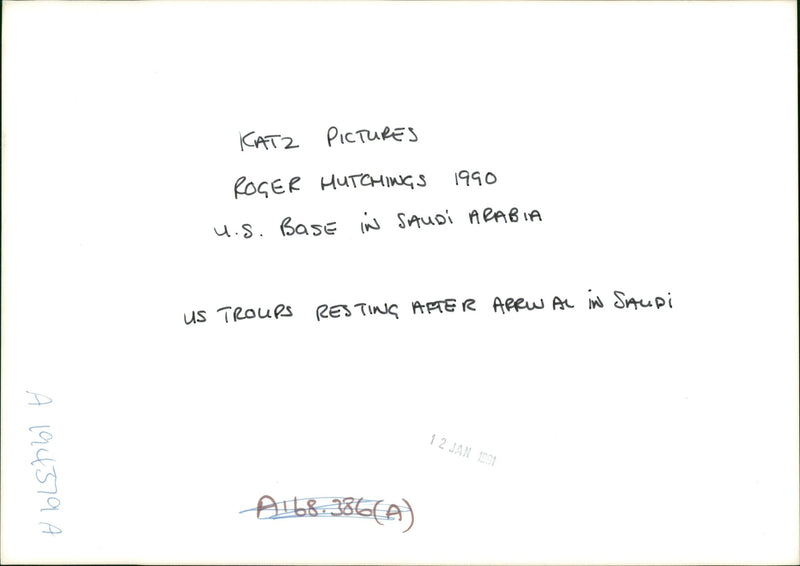 KATZ PICTURES
ROGER HUTCHINGS 1990
U.S. BASE IN SAUDI ARABIA
US TROUPS RESTING AFTER ARRIVAL IN SAUDI
12 JAN 1991
A168.386(A)
A 194579 A